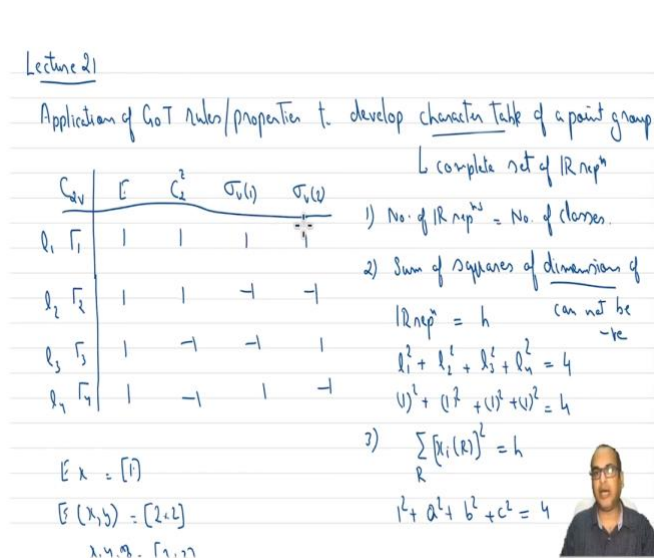 Lecture 21
Application of GOT rules/properties to develop character Table of a point group
↳ complete set of IR repⁿ
C₂ᵥ E C₂² σᵥ(1) σᵥ(2)
l₁ Γ₁ 1 1 1 1
l₂ Γ₂ 1 1 -1 -1
l₃ Γ₃ 1 -1 -1 1
l₄ Γ₄ 1 -1 1 -1
E x = [1]
E (x,y) = [2×2]
x,y,z =
1) No. of IR repⁿˢ = No. of classes.
2) Sum of squares of dimensions of
IR repⁿ = h can not be
-ve
l₁² + l₂² + l₃² + l₄² = 4
(1)² + (1)² + (1)² + (1)² = 4
3) Σ [χᵢ(R)]² = h
R
1² + a² + b² + c² = 4